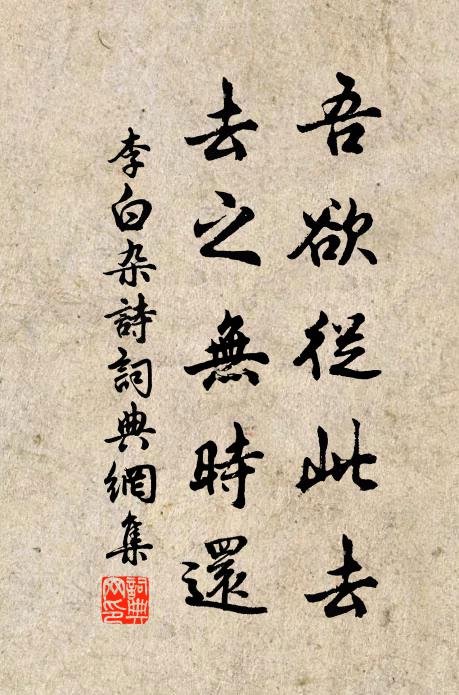 吾欲從此去
去之無時還
李白杂詩詞典網集
詞典网印